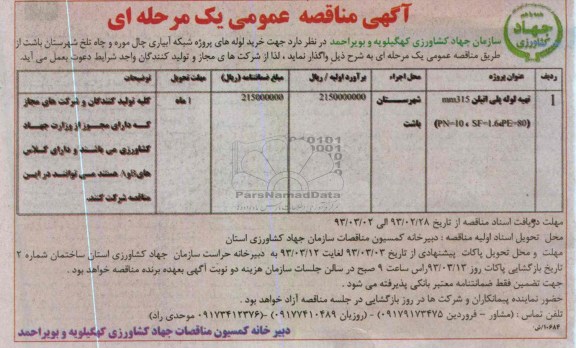 آگهی مناقصه عمومی یک مرحله ای
جهاد کشاورزی
سازمان جهاد کشاورزی کهگیلویه و بویراحمد در نظر دارد جهت خرید لوله های پروژه شبکه آبیاری چال موره و چاه تلخ شهرستان باشت از
طریق مناقصه عمومی یک مرحله ای به شرح ذیل واگذار نماید ، لذا از شرکت ها ی مجاز و تولید کنندگان واجد شرایط دعوت بعمل می آید.
ردیف عنوان پروژه محل اجراء برآورد اولیه / ریال مبلغ ضمانتنامه (ریال) مهلت تحویل توضیحات
1 تهیه لوله پلی اتیلن mm315 شهرستان 2150000000 215000000 1 ماه کلیه تولید کنندگان و شرکت های مجاز
(PN=10 ، SF=1.6،PE=80) باشت که دارای مجوز از وزارت جهاد
کشاورزی می باشند و دارای کلاس
های A,B هستند می توانند در این
مناقصه شرکت کنند.
ParsNamadData
مهلت دریافت اسناد مناقصه از تاریخ ۹۳/۰۲/۲۸ الی ۹۳/۰۳/۰۲
محل تحویل اسناد اولیه مناقصه : دبیرخانه کمسیون مناقصات سازمان جهاد کشاورزی استان
مهلت و محل تحویل پاکات پیشنهادی از تاریخ ۹۳/۰۳/۰۳ لغایت ۹۳/۰۳/۱۲ به دبیرخانه حراست سازمان جهاد کشاورزی استان ساختمان شماره ۲
تاریخ بازگشایی پاکات روز ۹۳/۰۳/۱۳راس ساعت ۹ صبح در سالن جلسات سازمان هزینه دو نوبت آگهی بعهده برنده مناقصه خواهد بود .
جهت تضمین فقط ضمانتنامه معتبر بانکی پذیرفته می شود .
حضور نماینده پیمانکاران و شرکت ها در روز بازگشایی در جلسه مناقصه آزاد خواهد بود .
تلفن تماس : (مشاور – فروردین ۰۹۱۷۹۱۷۳۴۷۵) - (روزبان ۰۹۱۷۷۴۱۰۴۸۹) -(۰۹۱۷۳۴۱۲۳۷۶ موحدی راد)
دبیر خانه کمسیون مناقصات جهاد کشاورزی کهگیلویه و بویراحمد
۱۰۶۸۴/ش